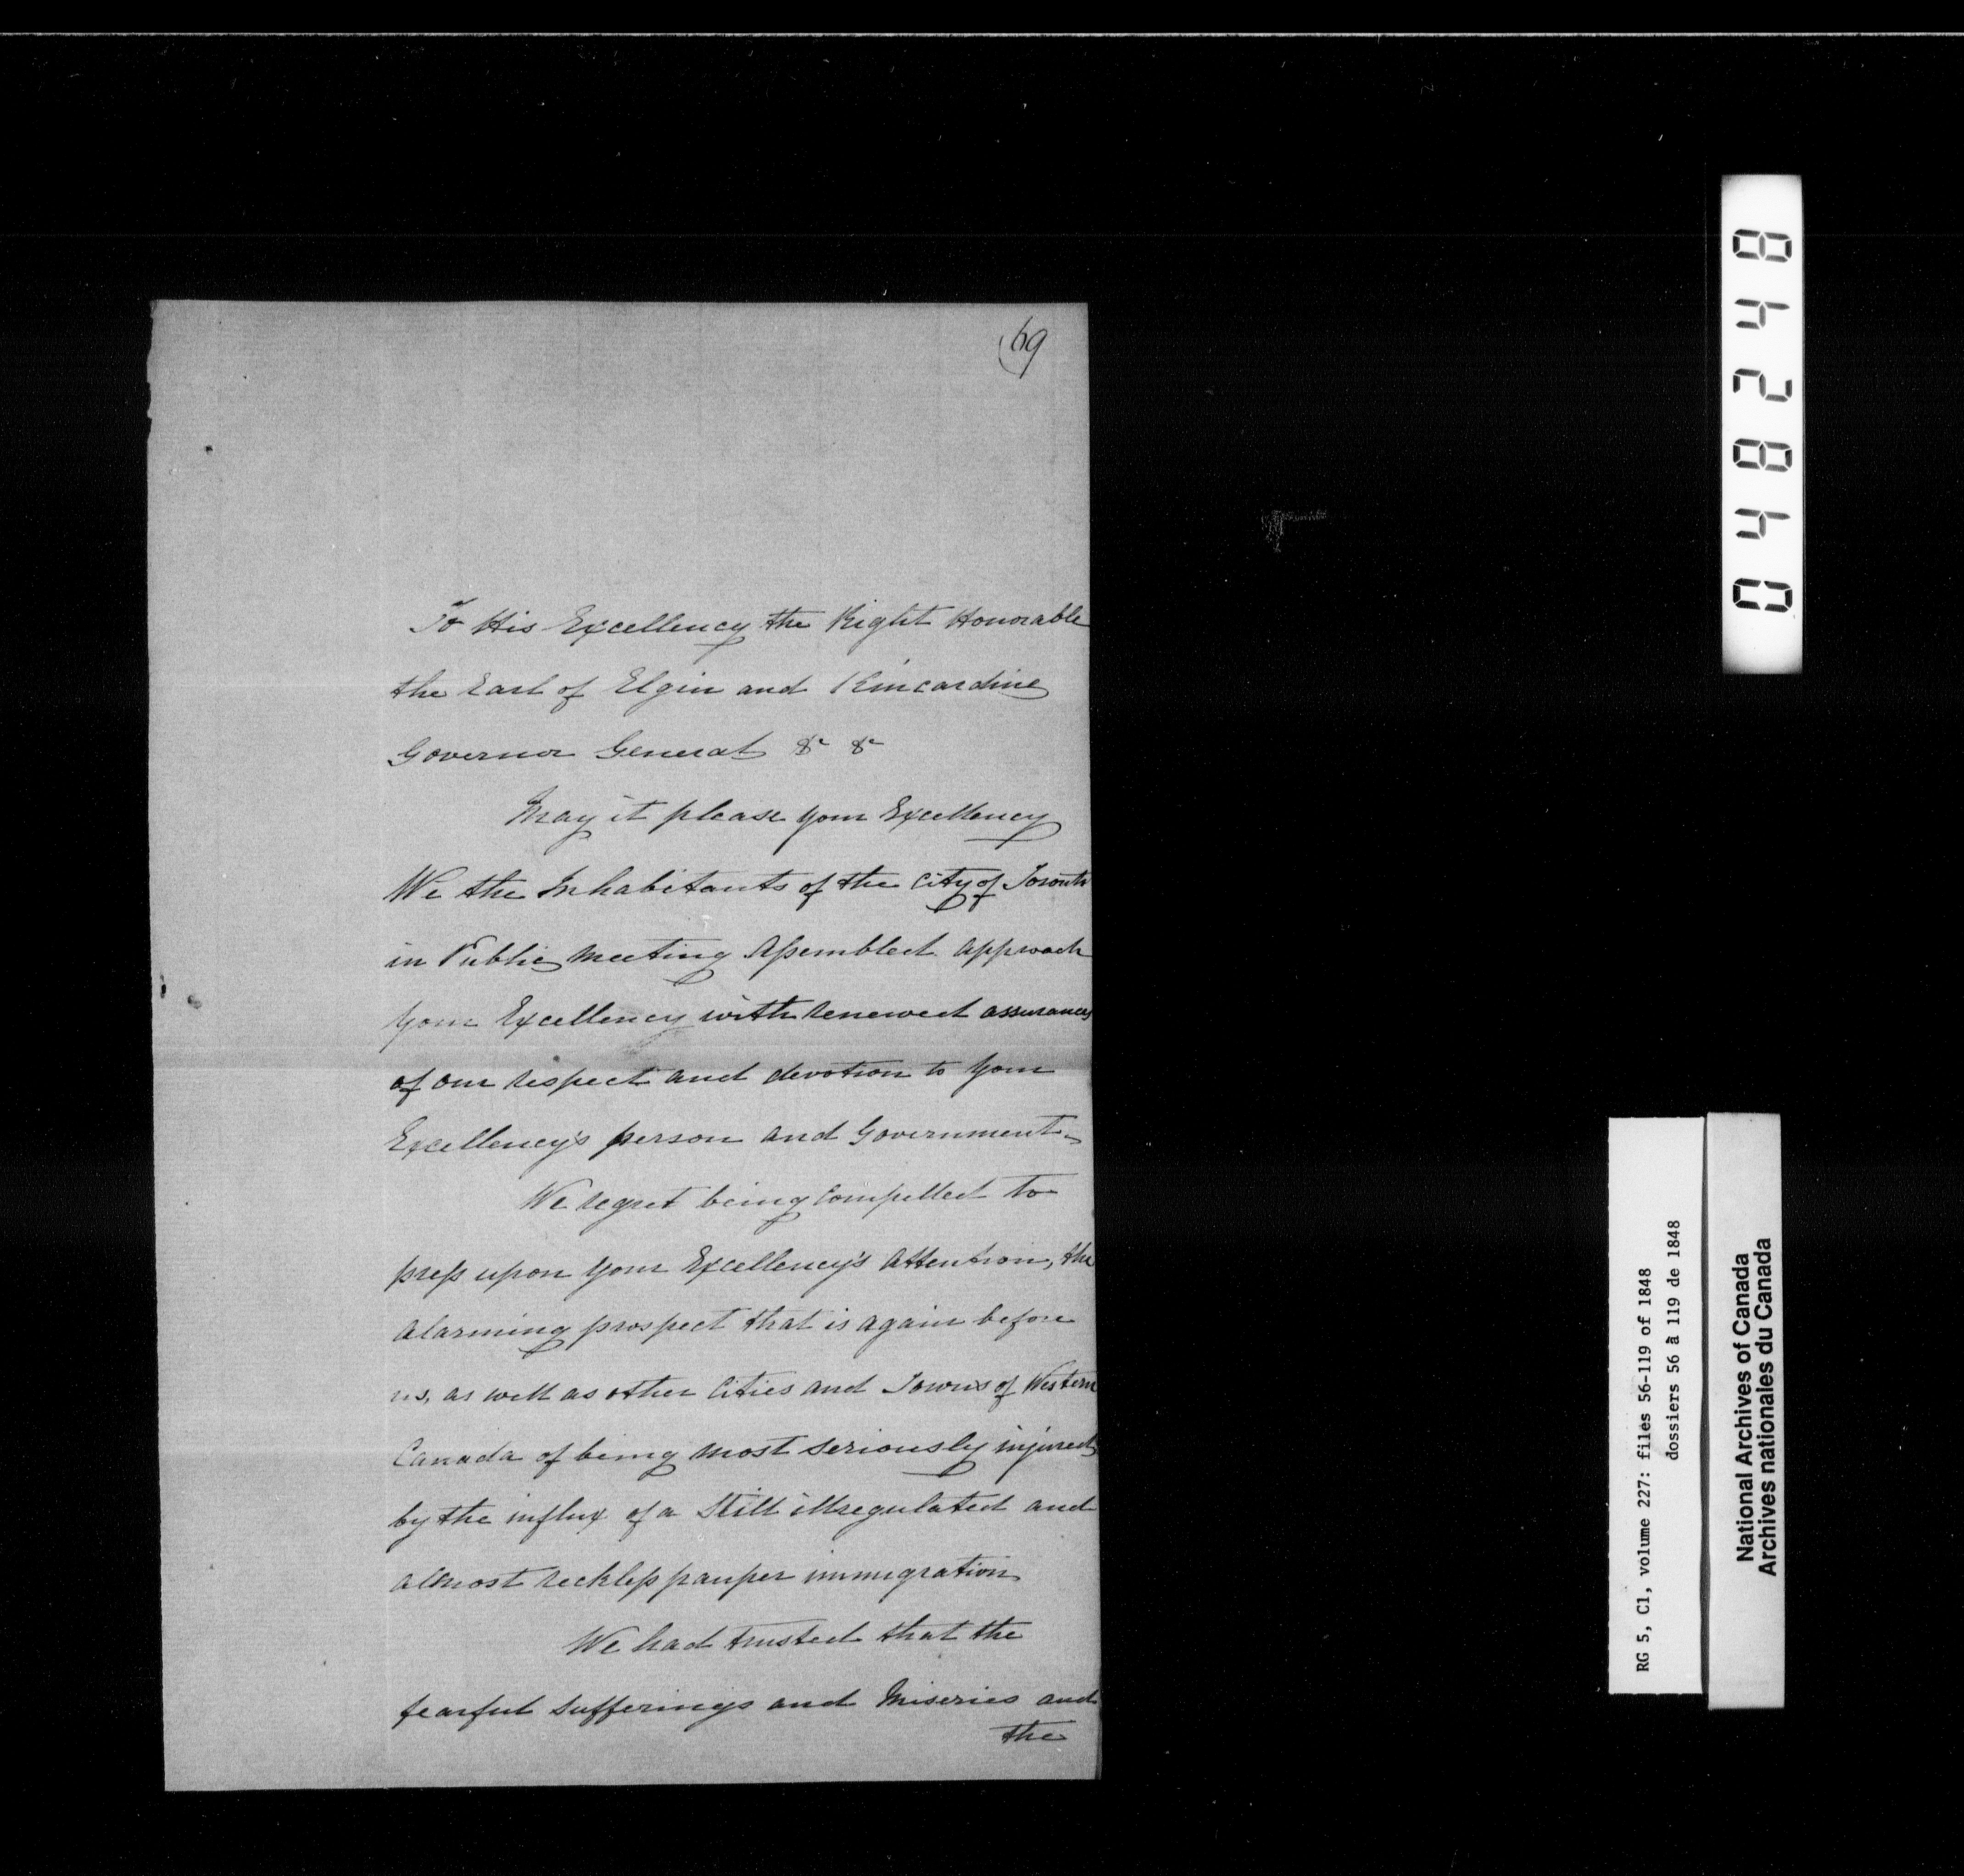 69
To His Excellency the Right Honorable
the Earl of Elgin and Kincardine
Governor General &c &c
May it please your Excellency
We the Inhabitants of the City of Toronto
in Public meeting Assembled approach
your Excellency with renewed assurances
of our respect and devotion to your
Excellency's person and Government.
We regret being compelled to
press upon your Excellency's attention, the
alarming prospect that is again before
us, as well as other Cities and Towns of Western
Canada of being most seriously injured
by the influx of a still illregulated and
almost reckless pauper immigration
We had trusted that the
fearful sufferings and miseries and
the
0428248
RG 5, C1, volume 227: files 56-119 of 1848
dossiers 56 à 119 de 1848
National Archives of Canada
Archives nationales du Canada